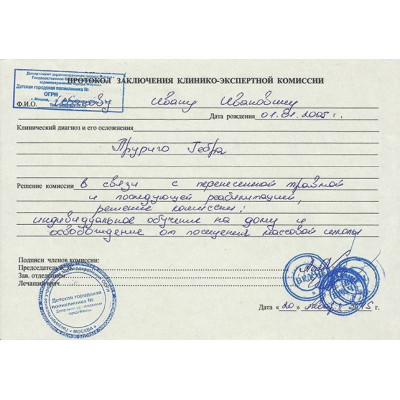 ПРОТОКОЛ ЗАКЛЮЧЕНИЯ КЛИНИКО-ЭКСПЕРТНОЙ КОМИССИИ
Детская городская поликлиника №
ОГРН
г. Москва,
Ф.И.О. Иванову Ивану Ивановичу
Дата рождения 01.01.2005г.
Клинический диагноз и его осложнения
Пруриго Гебра
Решение комиссии в связи с перенесенной травмой
и последующей реабилитацией,
решение комиссии:
индивидуальное обучение на дому и
освобождение от посещения массовой школы
Подписи членов комиссии:
Председатель
Зав. отделением
Лечащий
Детская городская
поликлиника №
МОСКВА
Дата «20» г.